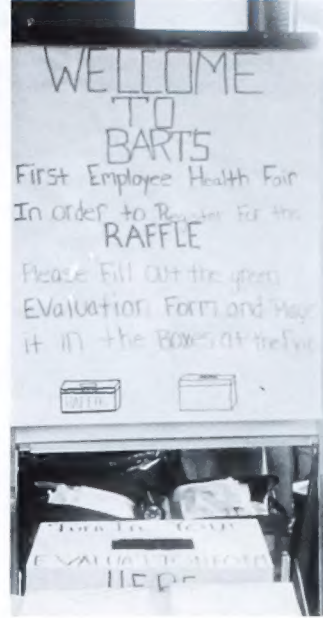 WELCOME
TO
BARTS
First Employee Health Fair
In order to Register For the
RAFFLE
Please Fill out the green
EValuation Form and Place
it in the Boxes at the
Turn In Your
EVALUATION FORM
HERE